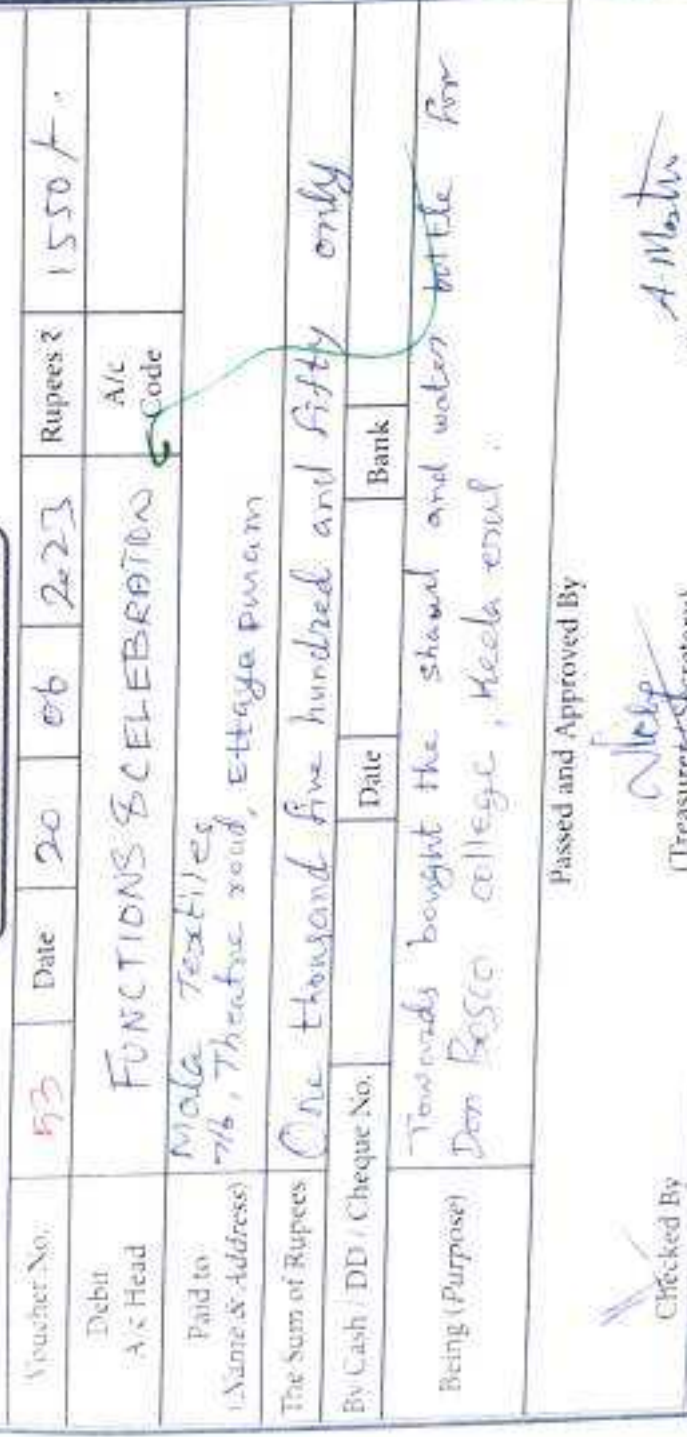 Voucher No. 53 Date 20 06 2023 Rupees ₹ 1550/-
Debit A/c Head FUNCTIONS & CELEBRATION A/c Code
Paid to (Name & Address) Mala Textiles
7/6, Theatre road, Ettaya puram
The Sum of Rupees One thousand five hundred and fifty only
By Cash / DD / Cheque No. Date Bank
Being (Purpose) Towards bought the shawl and water bottle for
Don Bosco college, Keela eral.
Passed and Approved By
Checked By (Treasurer/Secretary)